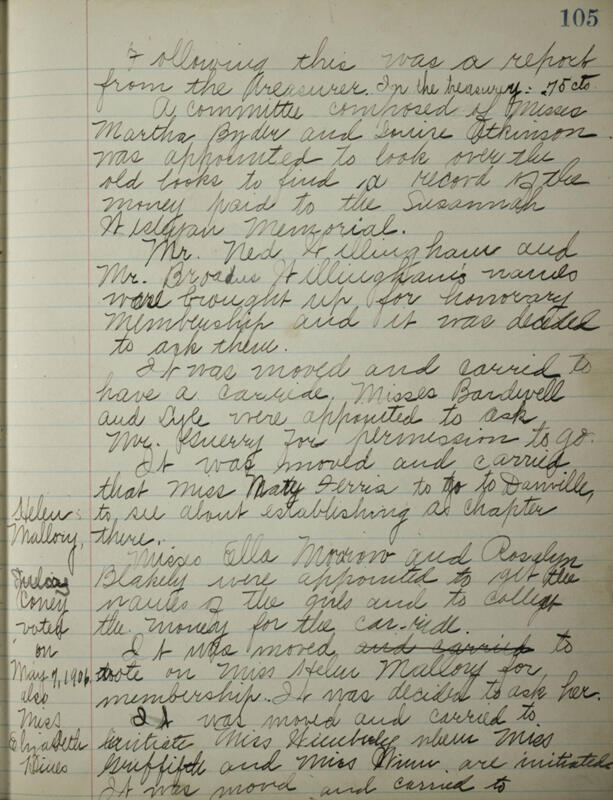 105
Following this was a report
from the Treasurer. In the treasury: 75 cts
A committee composed of Misses
Martha Byder and Louise Atkinson
was appointed to look over the
old books to find a record of the
money paid to the Susannah
Wesleyan Memorial.
Mr. Ned Willingham and
Mr. Broadus Willingham's names
were brought up for honorary
membership and it was decided
to ask them.
It was moved and carried to
have a carride. Misses Bardwell
and Lyle were appointed to ask
Mr. Guerry for permission to go.
It was moved and carried
that Miss Katy Ferris to go to Danville,
to see about establishing a chapter
there.
Misses Ella Morrow and Rosalyn
Blakely were appointed to get the
names of the girls and to collect
the money for the car-ride.
It was moved and carried to
vote on Miss Helen Mallory for
membership. It was decided to ask her.
It was moved and carried to
initiate Miss when Miss
Griffith and Miss are initiated
It was moved and carried to
Helen
Mallory,
Coney
voted
on
May 7, 1906.
also
Miss
Elizabeth
Hines